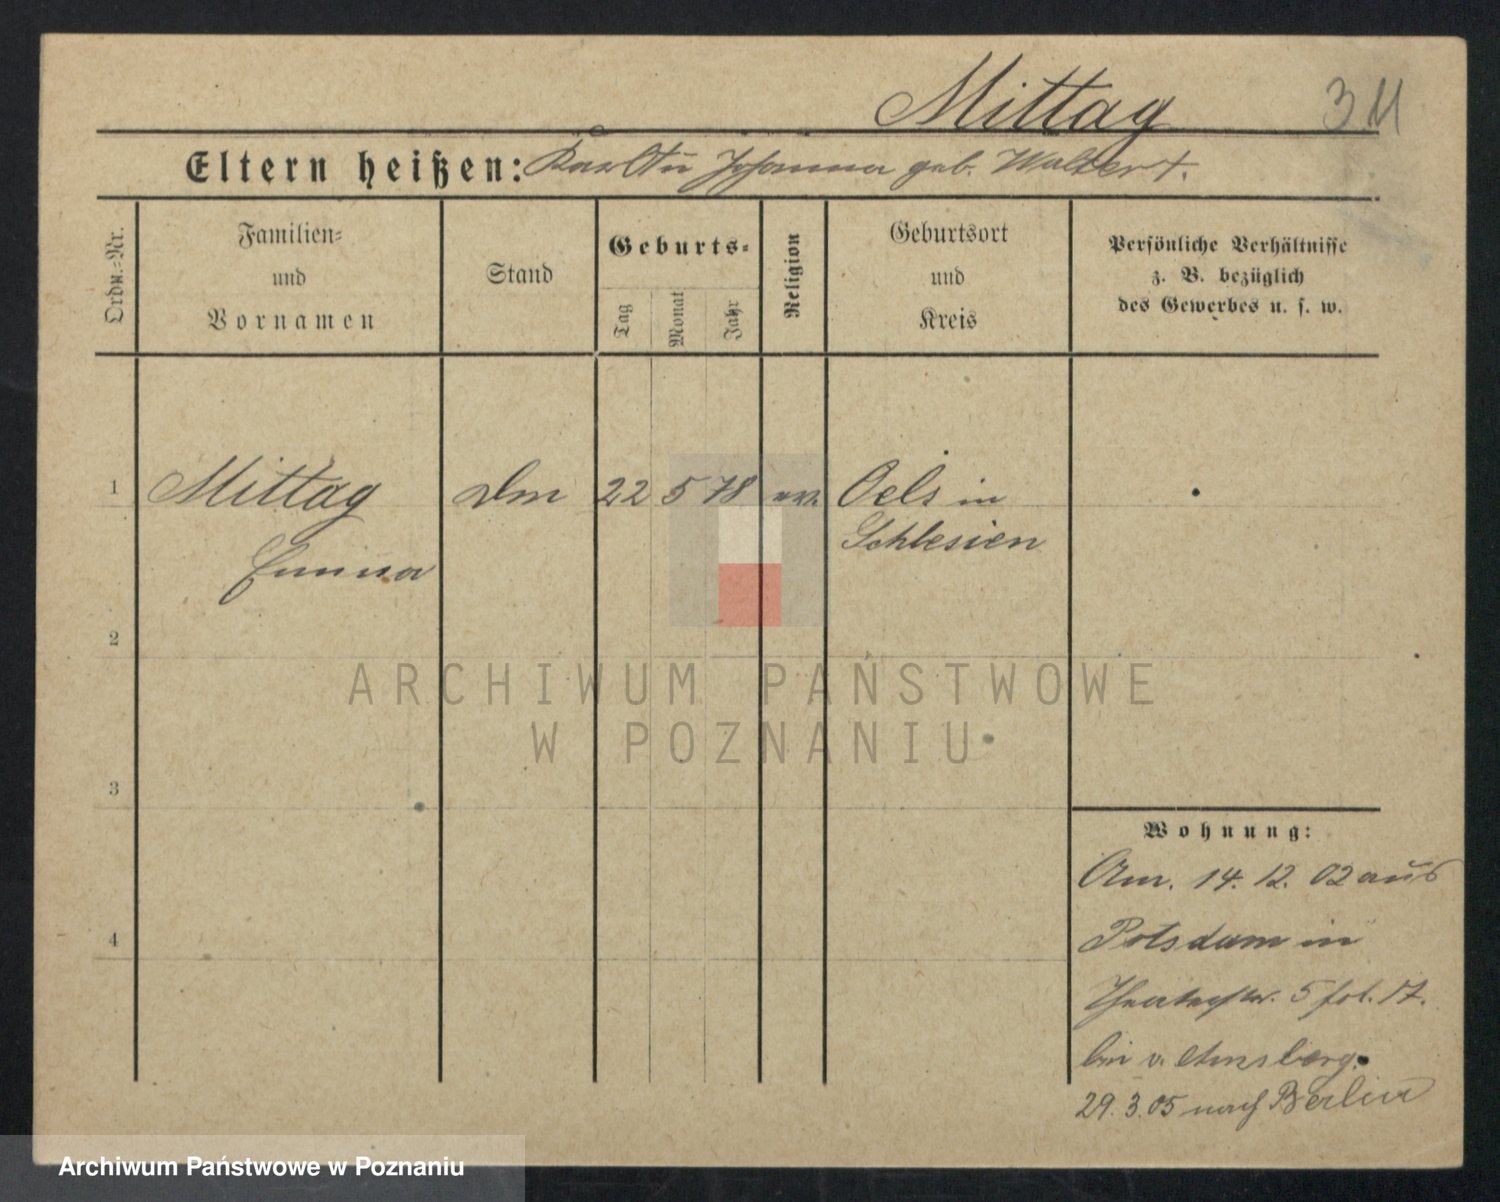 Mittag
Eltern heißen: Karl u Johanna geb. Walter †.
Ordn.-Nr.
Familien-
und
Vornamen
Stand
Geburts-
Tag
Monat
Jahr
Religion
Geburtsort
und
Kreis
Persönliche Verhältnisse
z. B. bezüglich
des Gewerbes u. s. w.
1 Mittag 22 5 78 ev. Oels in
Schlesien
Emma
2
3
4
Wohnung:
Am. 14. 12. 02 aus
Potsdam in
Theaterstr. 5 fol. 17.
bei v. Arnsberg.
29. 3. 05 nach Berlin
ARCHIWUM PAŃSTWOWE
W POZNANIU
Archiwum Państwowe w Poznaniu